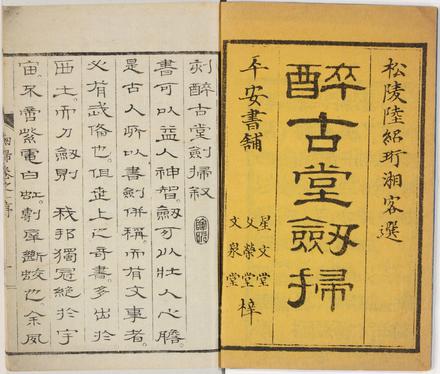 松陵陸紹珩湘客選
醉古堂劔掃
平安書舗
星文堂
文榮堂
文泉堂
梓
刻醉古堂劔掃叙
書可以益人神智。劔可以壯人心膽。
是古人所以書劔併稱。而有文事者。
必有武備也。但坐上之奇書。多出於
西土。而刀劔則 我邦獨冠絶於宇
宙。不啻紫電白虹。剸犀斷蛟也。余夙